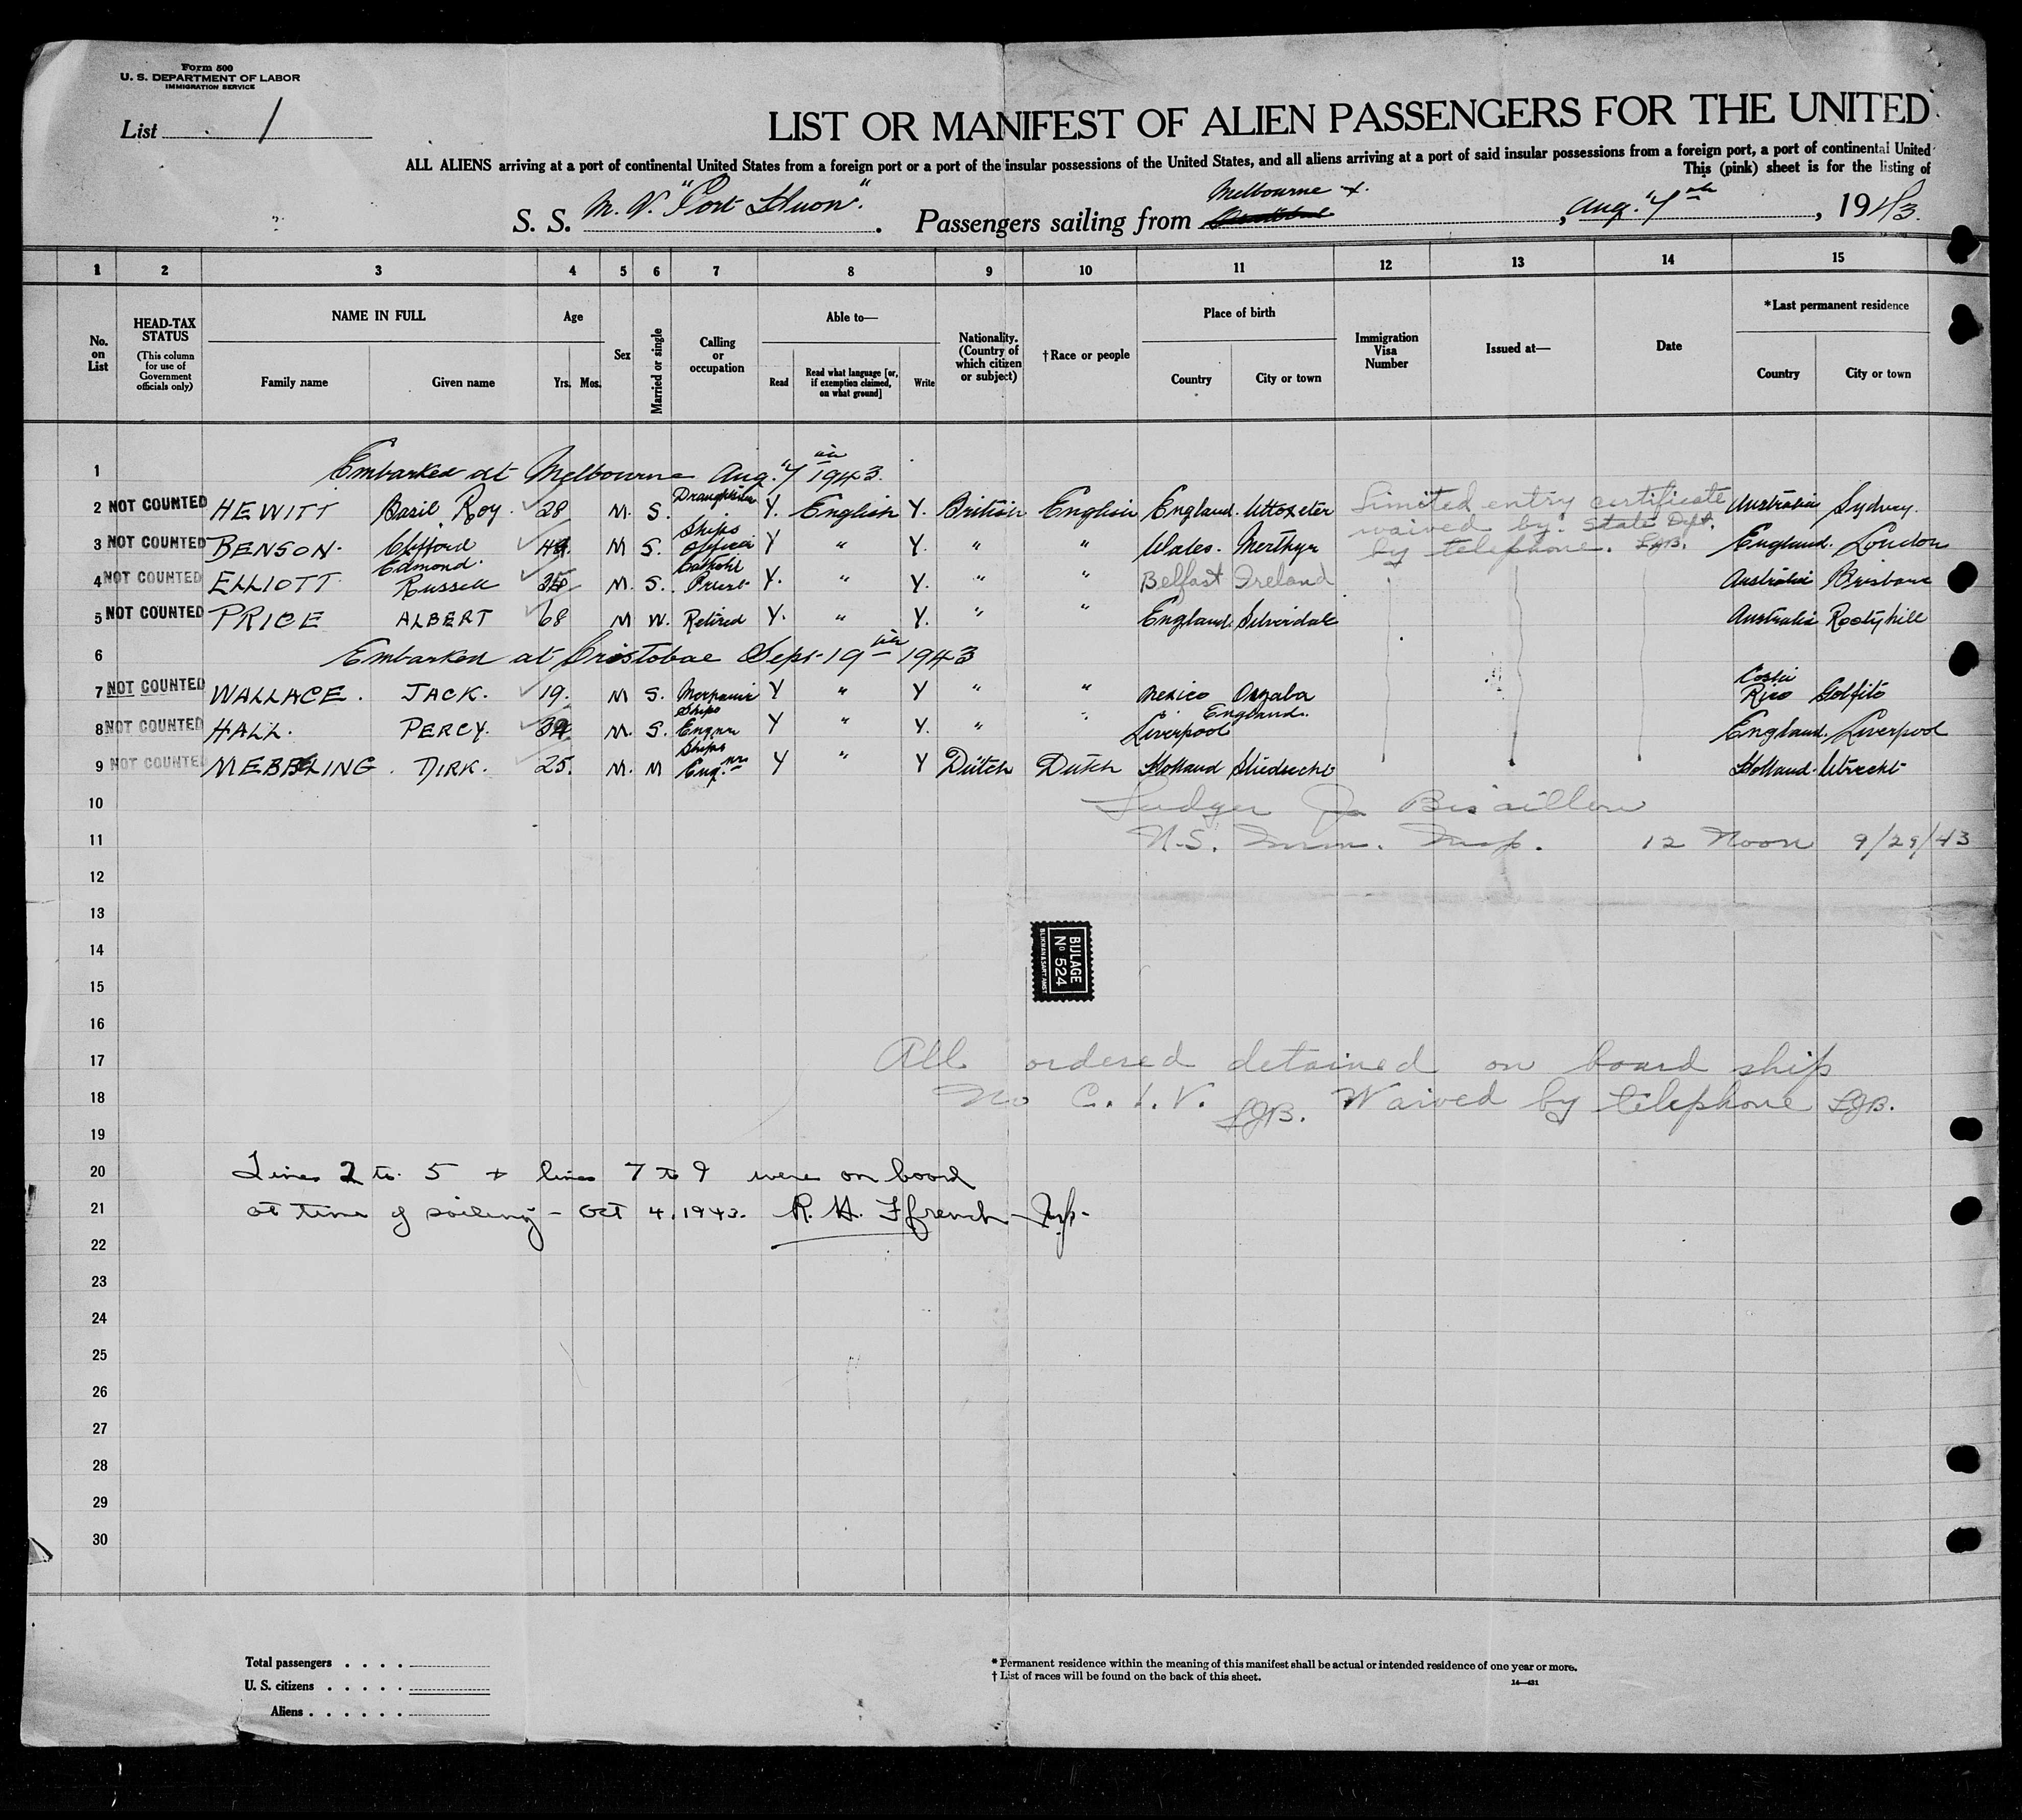 Form 500
U. S. DEPARTMENT OF LABOR
IMMIGRATION SERVICE
List 1
LIST OR MANIFEST OF ALIEN PASSENGERS FOR THE UNITED
ALL ALIENS arriving at a port of continental United States from a foreign port or a port of the insular possessions of the United States, and all aliens arriving at a port of said insular possessions from a foreign port, a port of continental United
This (pink) sheet is for the listing of
S. S. M. V. "Port Huon". Passengers sailing from Melbourne +, Aug. 7th, 1943.
1 2 3 4 5 6 7 8 9 10 11 12 13 14 15
No. on List
HEAD-TAX STATUS (This column for use of Government officials only)
NAME IN FULL
Family name Given name
Age
Yrs. Mos.
Sex
Married or single
Calling or occupation
Able to—
Read Read what language [or, if exemption claimed, on what ground] Write
Nationality. (Country of which citizen or subject)
†Race or people
Place of birth
Country City or town
Immigration Visa Number
Issued at—
Date
*Last permanent residence
Country City or town
1 Embarked at Melbourne Aug. 7th 1943.
2 NOT COUNTED HEWITT Basil Roy. 28 M. S. Y. English Y. British English England. Uttoxeter Limited entry certificate Australia Sydney.
waived by State Dept.
by telephone. LJB.
3 NOT COUNTED BENSON. Clifford M S. Ships Officer Y " Y. " " Wales. Merthyr England. London
4 NOT COUNTED ELLIOTT. Edmond. Russell M. S. Catholic Priest Y. " Y. " " Belfast Ireland Australia Brisbane
5 NOT COUNTED PRICE ALBERT 68 M W. Retired Y. " Y. " " England Silverdale Australia Rootyhill
6 Embarked at Cristobal Sept 19th 1943
7 NOT COUNTED WALLACE. JACK. 19. M S. Y " Y " " Mexico Orizaba Costa Rica Golfito
8 NOT COUNTED HALL. PERCY. M. S. Ships Engnr Y " Y. " " Liverpool England. England. Liverpool
9 NOT COUNTED MEBELING. DIRK. 25. M. M Ships Eng.nr Y " Y Dutch Dutch Holland Sliedrecht Holland. Utrecht
10 Ludger J. Bisaillon
11 U.S. Imm. Insp. 12 Noon 9/29/43
12
13
14
15
BIJLAGE
No 524
BLIKMAN & SARTI AMST
16
17 All ordered detained on board ship
18 No C. I. V. LJB. Waived by telephone LJB.
19
20 Lines 2 to 5 + lines 7 to 9 were on board
21 at time of sailing - Oct 4, 1943. R. H. Ffrench Insp.
22
23
24
25
26
27
28
29
30
Total passengers . . . .
U. S. citizens . . . . .
Aliens . . . . . .
* Permanent residence within the meaning of this manifest shall be actual or intended residence of one year or more.
† List of races will be found on the back of this sheet.
14—431